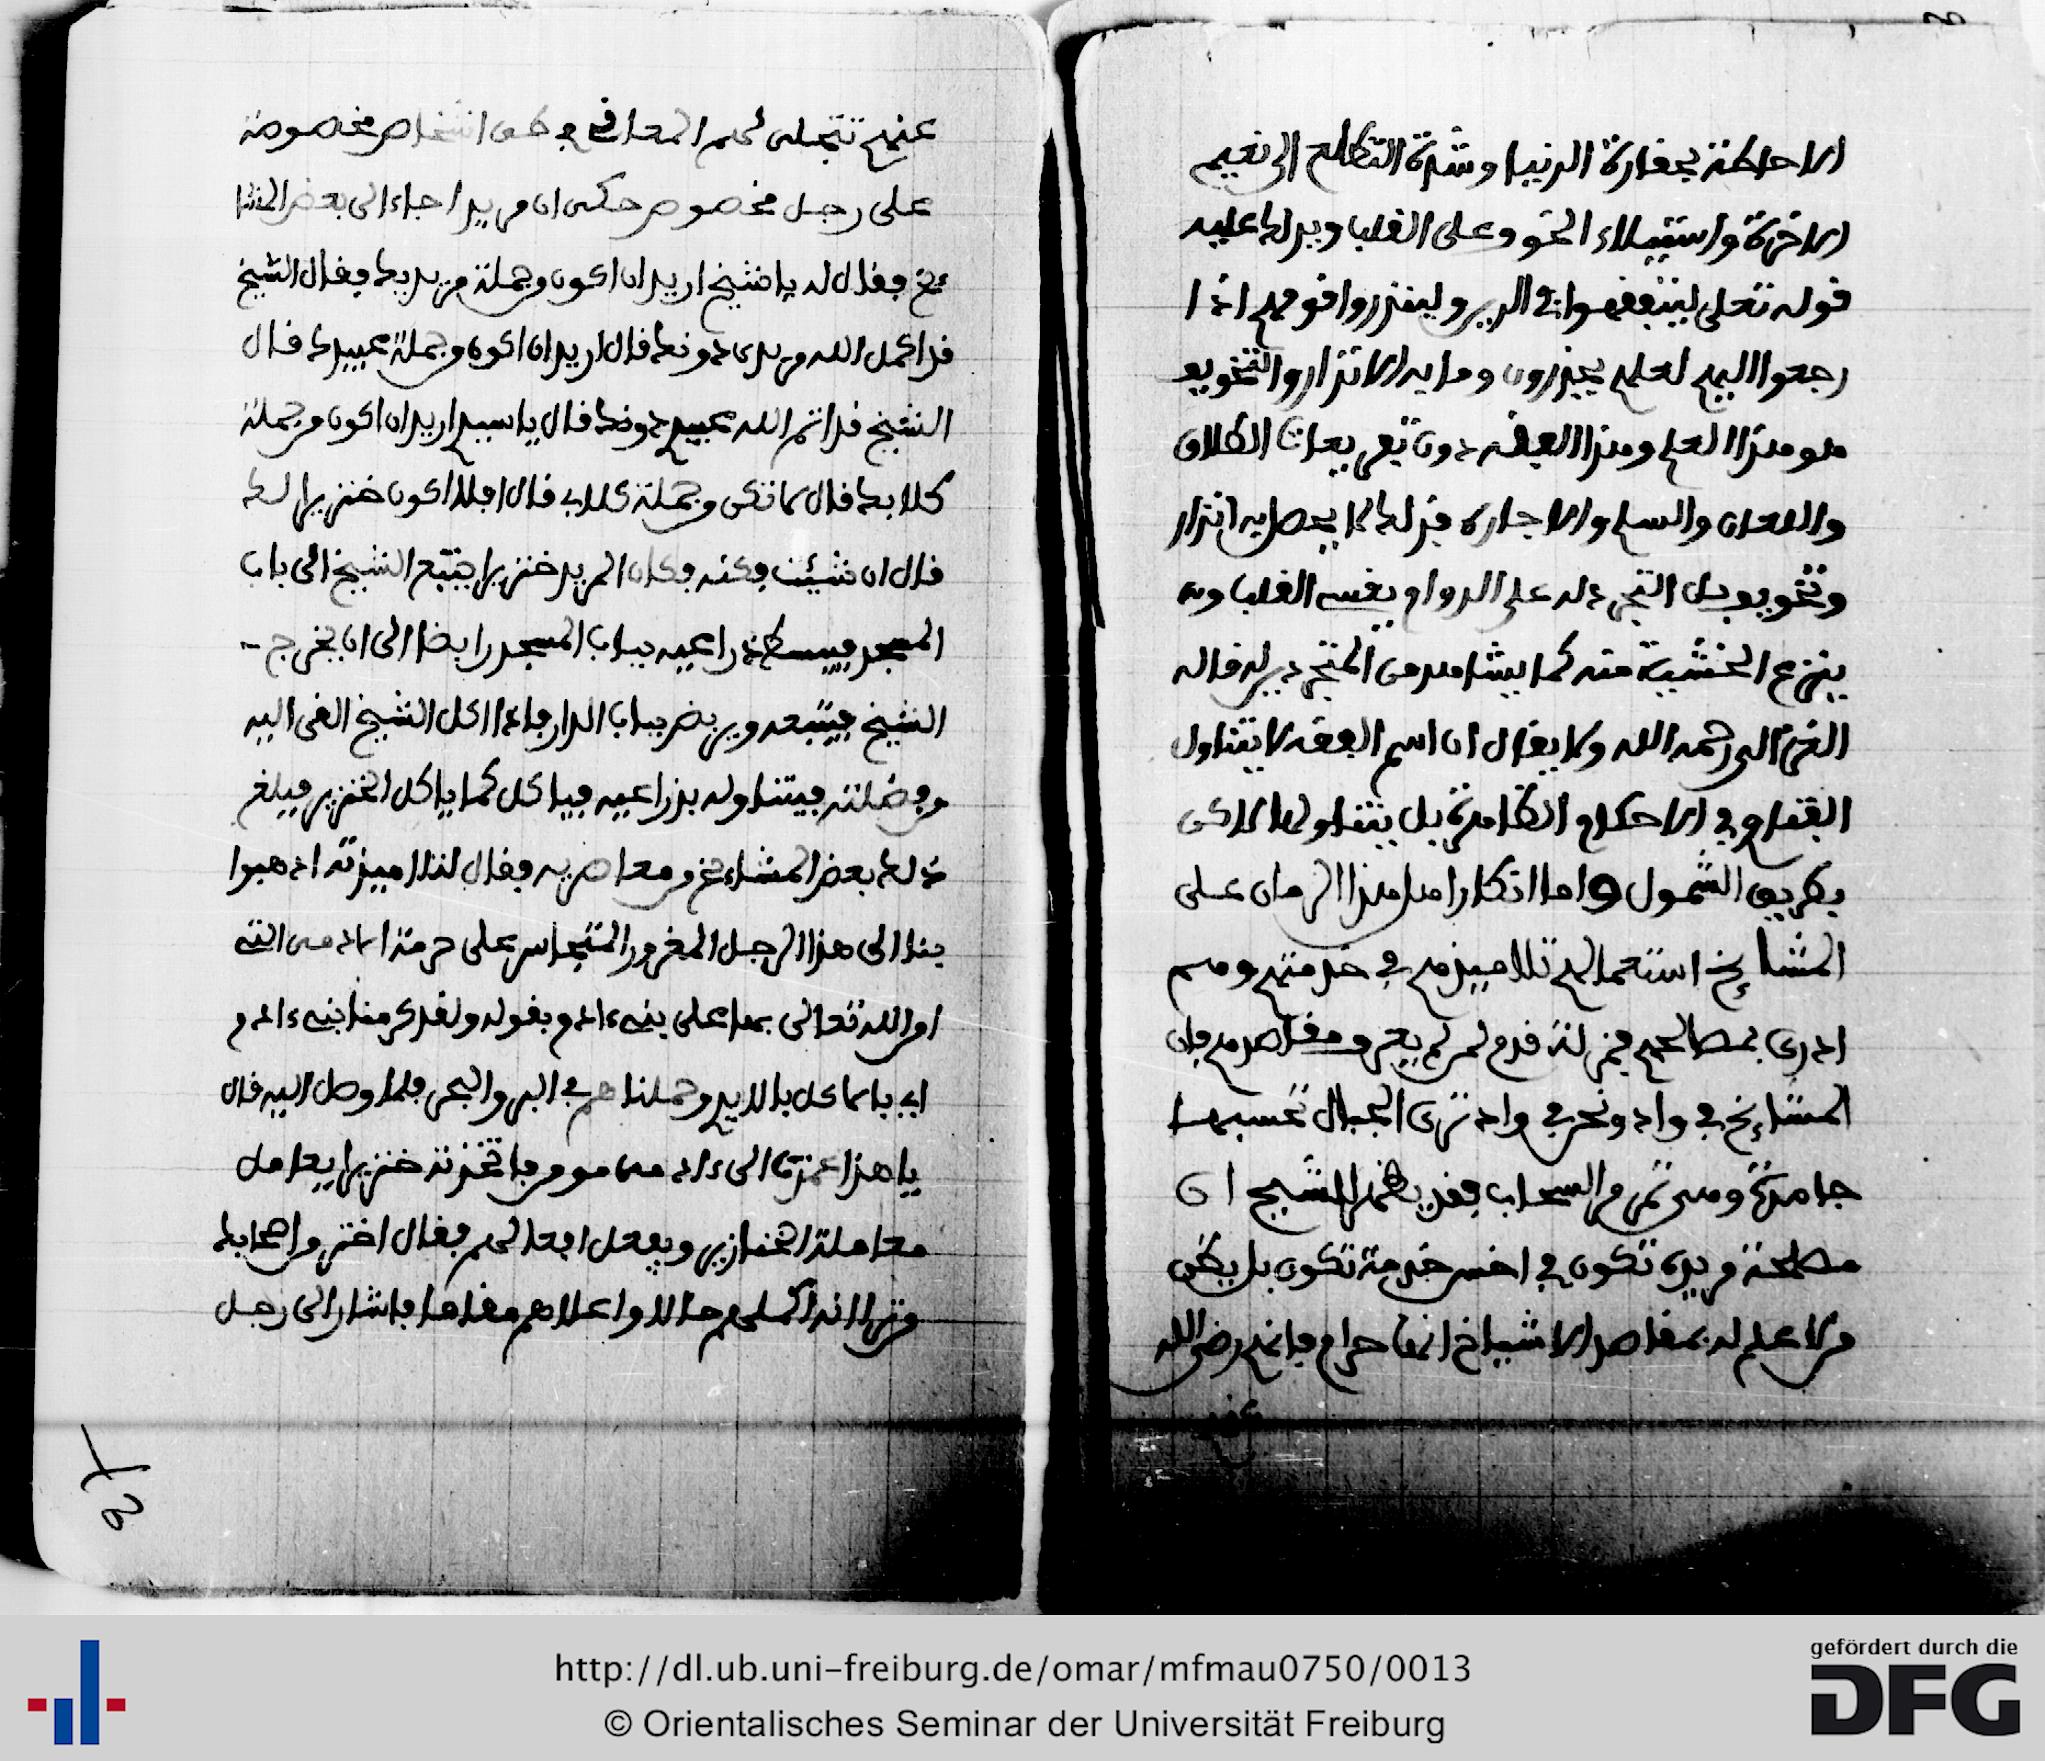 الاحاطة بحقارة الدنيا وشدة التطلع الى نعيم
الاخرة واستيلاء الخوف على القلب ويدلك عليه
قوله تعلى ليتفقهوا في الدين ولينذروا قومهم اذا
رجعوا اليهم لعلهم يحذرون وما به الانذار والتخويف
هو هذا العلم وهذا الفقه دون تعريفات الطلاق
واللعان والسلم والاجارة فذلك لا يحصل به انذار
وتخويف بل التجرد له على الدوام يقسي القلب و
ينزع الخشية منه كما يشاهد من المتجردين له قاله
الغزالي رحمه الله ولا يقال ان اسم الفقه لا يتناول
الفتاوي في الاحكام الظاهرة بل يتناولها لاكن
بطريق الشمول واما انكار اهل هذا الزمان على
المشائخ استعمالهم تلاميذهم في خدمتهم وهم
ادرى بمصالحهم فمزلة قدم لمن لم يعرف مقاصدهم فان
المشائخ في واد ونحن في واد ترى الجبال تحسبها
جامدة وهي تمر مر السحاب فقد يظهر للشيخ ان
مصلحة مريده تكون في اخس خدمة تكون بل يظن
من لا علم له بمقاصد الاشياخ انها حرام فانهم رضي الله
عنهم
عنهم تتجلى لهم المعارف في طي اشخاص مخصوصة
على رجل مخصوص حكى ان مريدا جاء الى بعض المشا
ئخ فقال له يا شيخ اريد ان اكون من جملة مريديك فقال الشيخ
قد اكمل الله مريدي دونك قال اريد ان اكون من جملة عبيدك قال
الشيخ قد اتم الله عبيدي دونك قال يا سيدي اريد ان اكون من جملة
كلابك قال لا تكن من جملة كلابي قال افلا اكون خنزيرا لك
قال ان شيئت فكنه فكان المريد خنزيرا يتبع الشيخ الى باب
المسجد فيبسط ذراعيه بباب المسجد رابضا الى ان يخرج
الشيخ فيتبعه ويربض بباب الدار فاذا اكل الشيخ القى اليه
من فضلته فيتناوله بذراعيه فياكل كما ياكل الخنزير فبلغ
ذلك بعض المشائخ من معاصريه فقال لتلاميذته اذهبوا
بنا الى هذا الرجل المغرور المتجاسر على حرمة الادمى التي
امر الله تعالى بها على بني ءادم بقوله ولقد كرمنا بني ءادم
اي بالاكل بالايدي وحملناهم في البر والبحر فلما وصل اليه قال
يا هذا عمدت الى ءادمى مومن فاتخذته خنزيرا يعامل
معاملة الخنازير ويفعل افعالهم فقال اختر من اصحابك
من ترى انه اكملهم حالا واعلاهم مقاما فاشار الى رجل
http://dl.ub.uni-freiburg.de/omar/mfmau0750/0013
© Orientalisches Seminar der Universität Freiburg
gefördert durch die
DFG